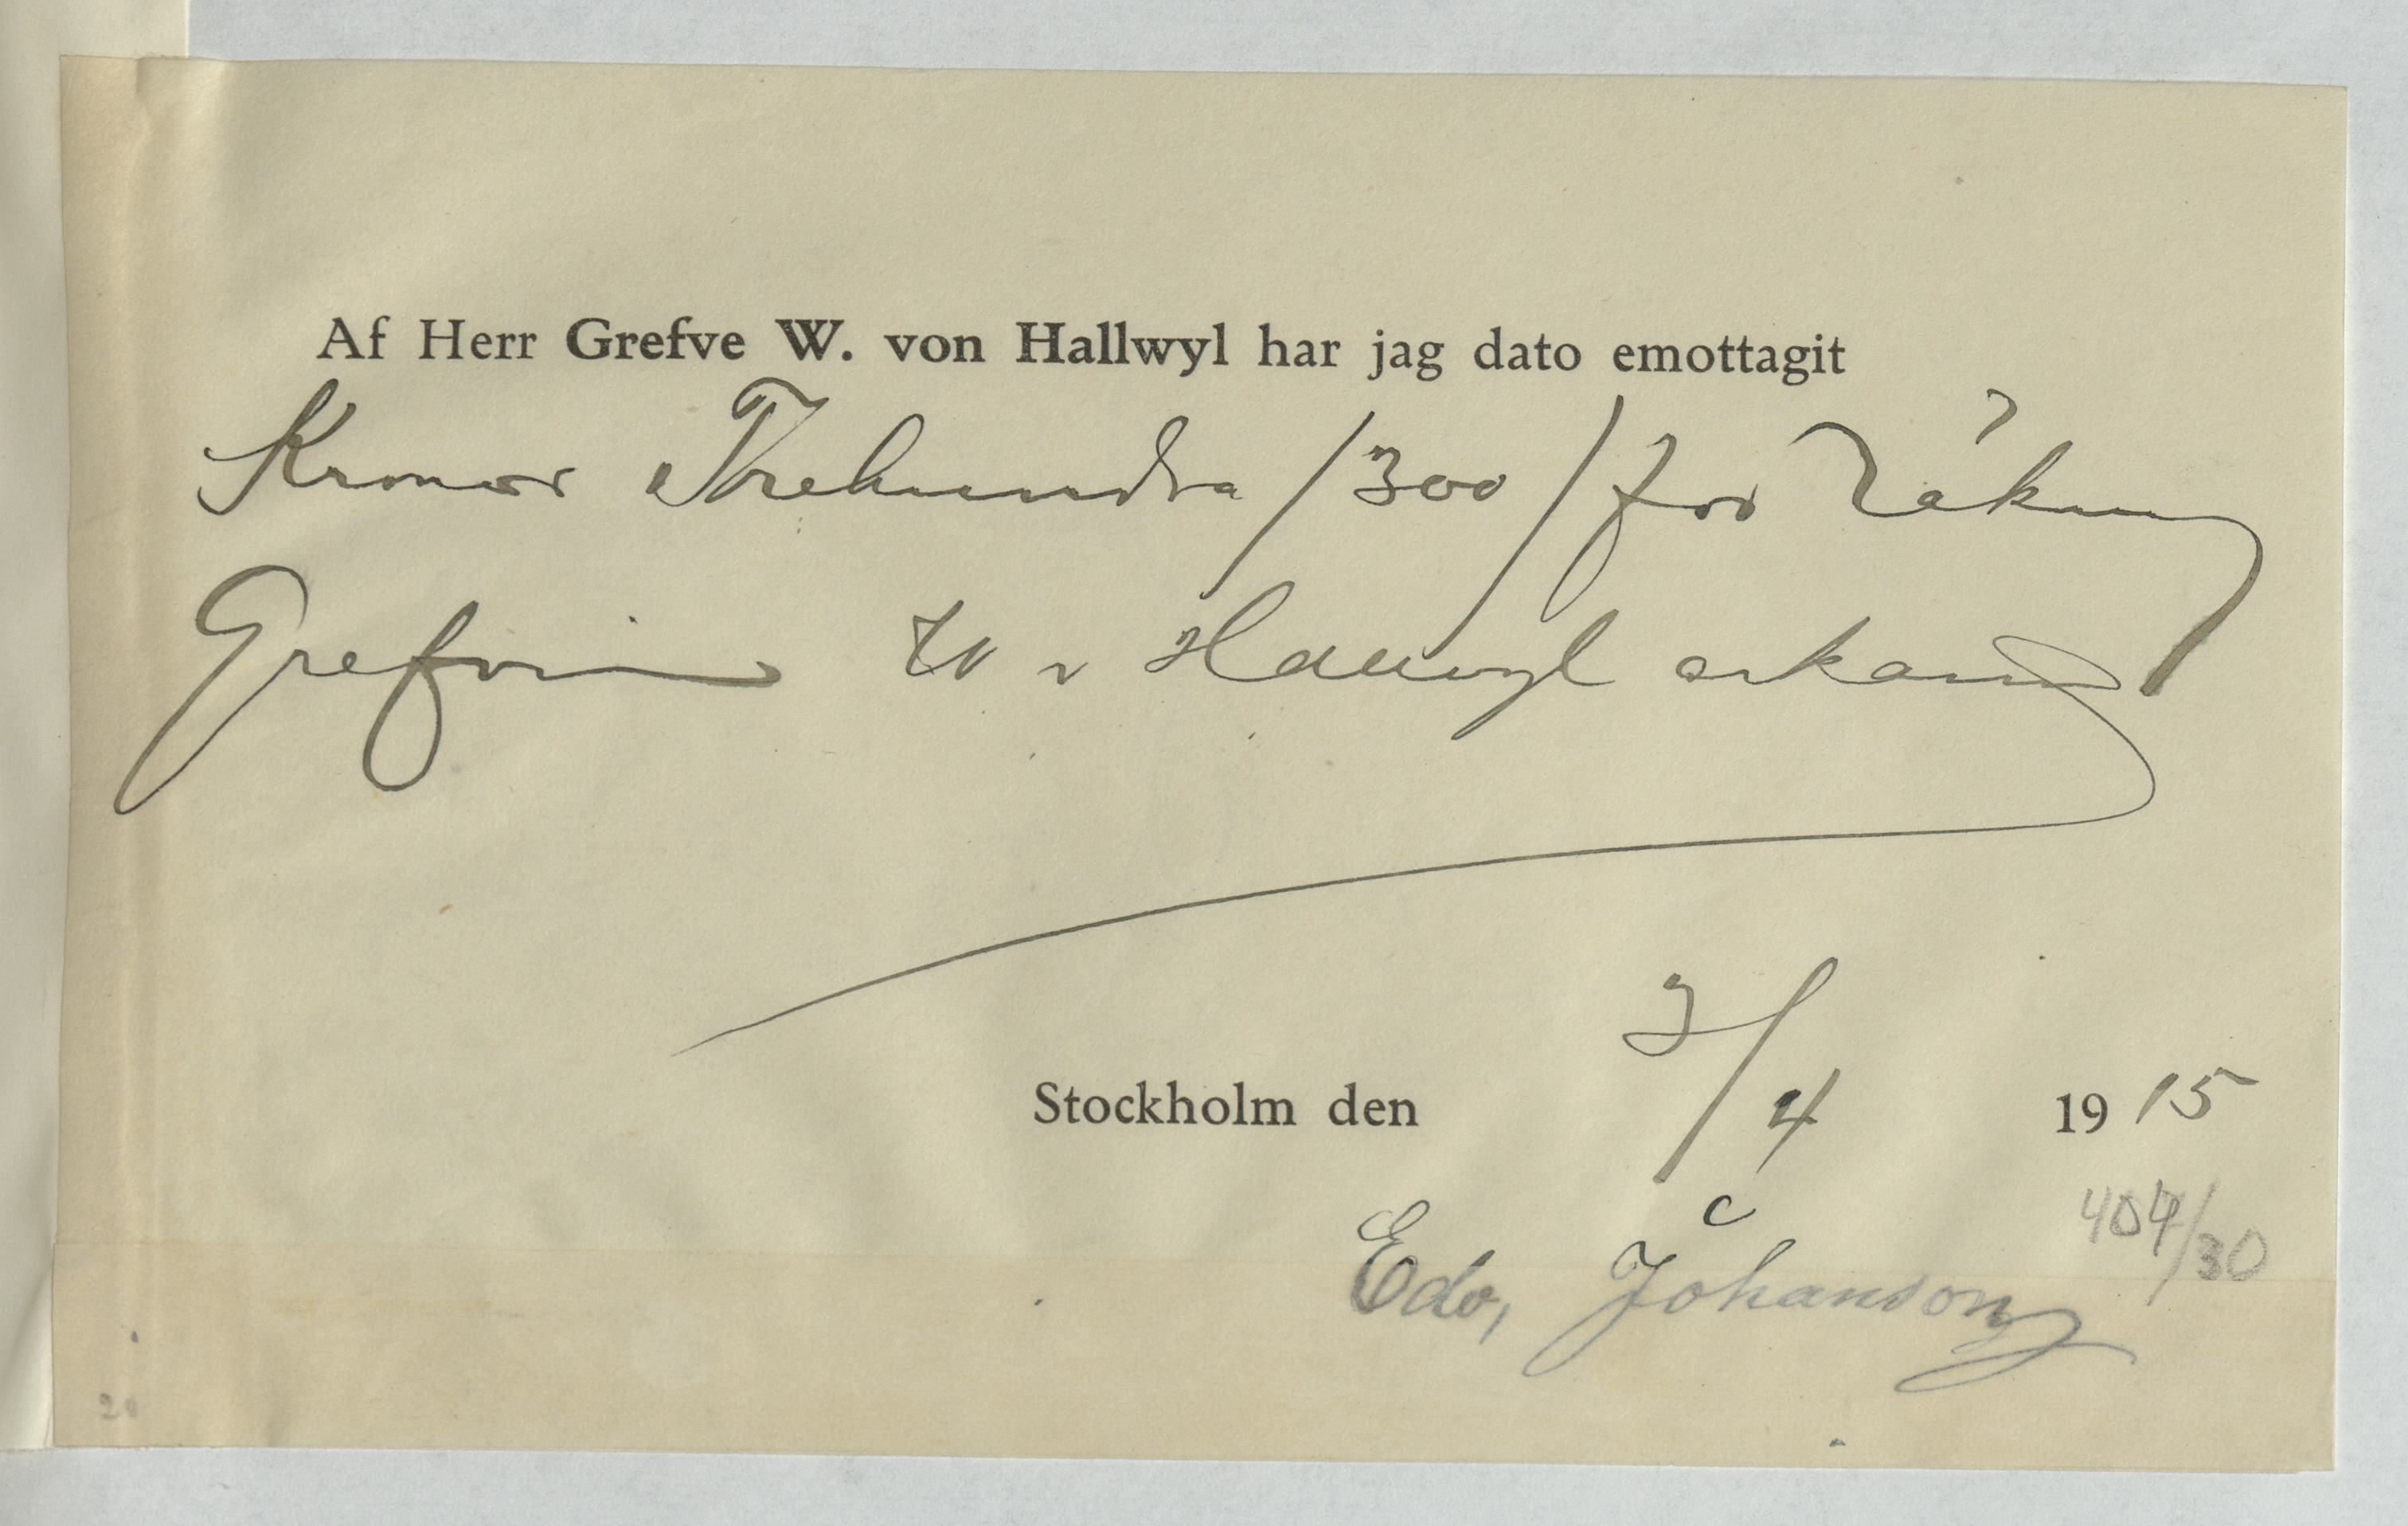 Af Herr Grefve W. von Hallwyl har jag dato emottagit
Kronor Trehundra /300/ för Räkning
Grefvinnan W v Hallwyl erkännes
3/4
Stockholm den 1915
404/30
Edv, Johanson
20